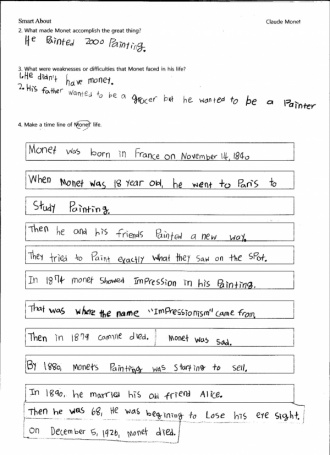 Smart About
Claude Monet
2. What made Monet accomplish the great thing?
He Painted 2000 Painting.
3. What were weaknesses or difficulties that Monet faced in his life?
1. He didn't have monet.
2. His father wanted to be a grocer but he wanted to be a Painter
4. Make a time line of Monet life.
Monet was born in France on November 14, 1840
When Monet was 18 year old, he went to Paris to
Study Painting.
Then he and his friends Painted a new way.
They tried to Paint exactly what they saw on the spot.
In 1874 monet showed Impression in his Painting.
That was where the name "Impressionism" came from.
Then in 1879 camille died. Monet was sad.
By 1880, Monets Painting was starting to sell.
In 1890, he married his old friend Alice.
Then he was 68, He was beginning to Lose his eye sight.
On December 5, 1926, monet died.